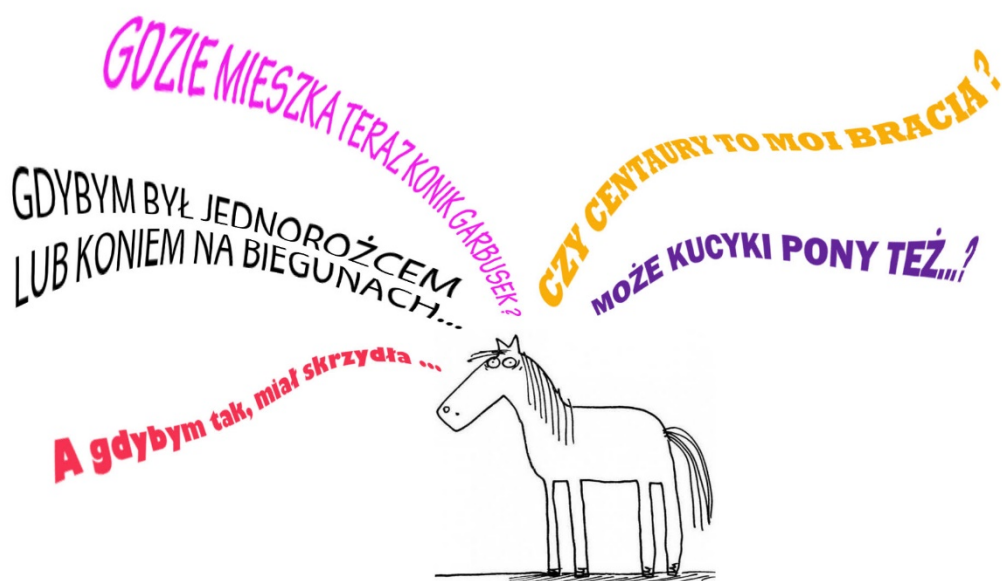 GDZIE MIESZKA TERAZ KONIK GARBUSEK ?
GDYBYM BYŁ JEDNOROŻCEM
LUB KONIEM NA BIEGUNACH...
A gdybym tak, miał skrzydła ...
CZY CENTAURY TO MOI BRACIA ?
MOŻE KUCYKI PONY TEŻ...?